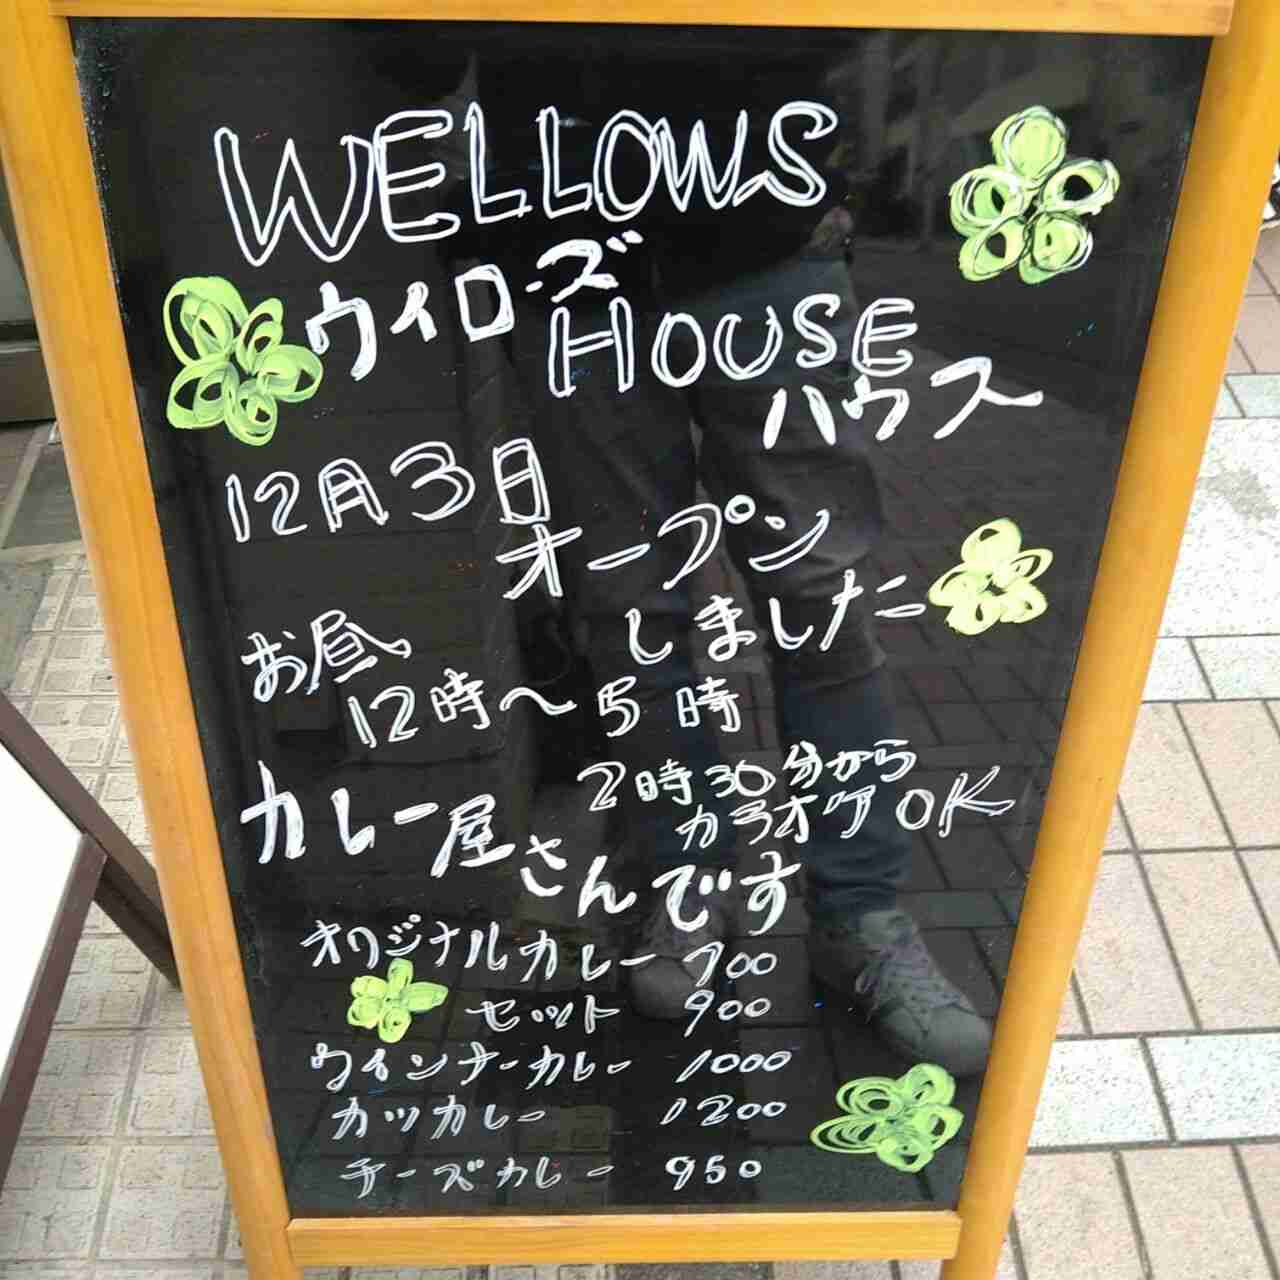 WELLOWS
ウィローズ
HOUSE
ハウス
12月3日
オープン
しました
お昼
12時〜5時
2時30分から
カラオケOK
カレー屋さんです
オリジナルカレー 700
セット 900
ウインナーカレー 1000
カツカレー 1200
チーズカレー 950